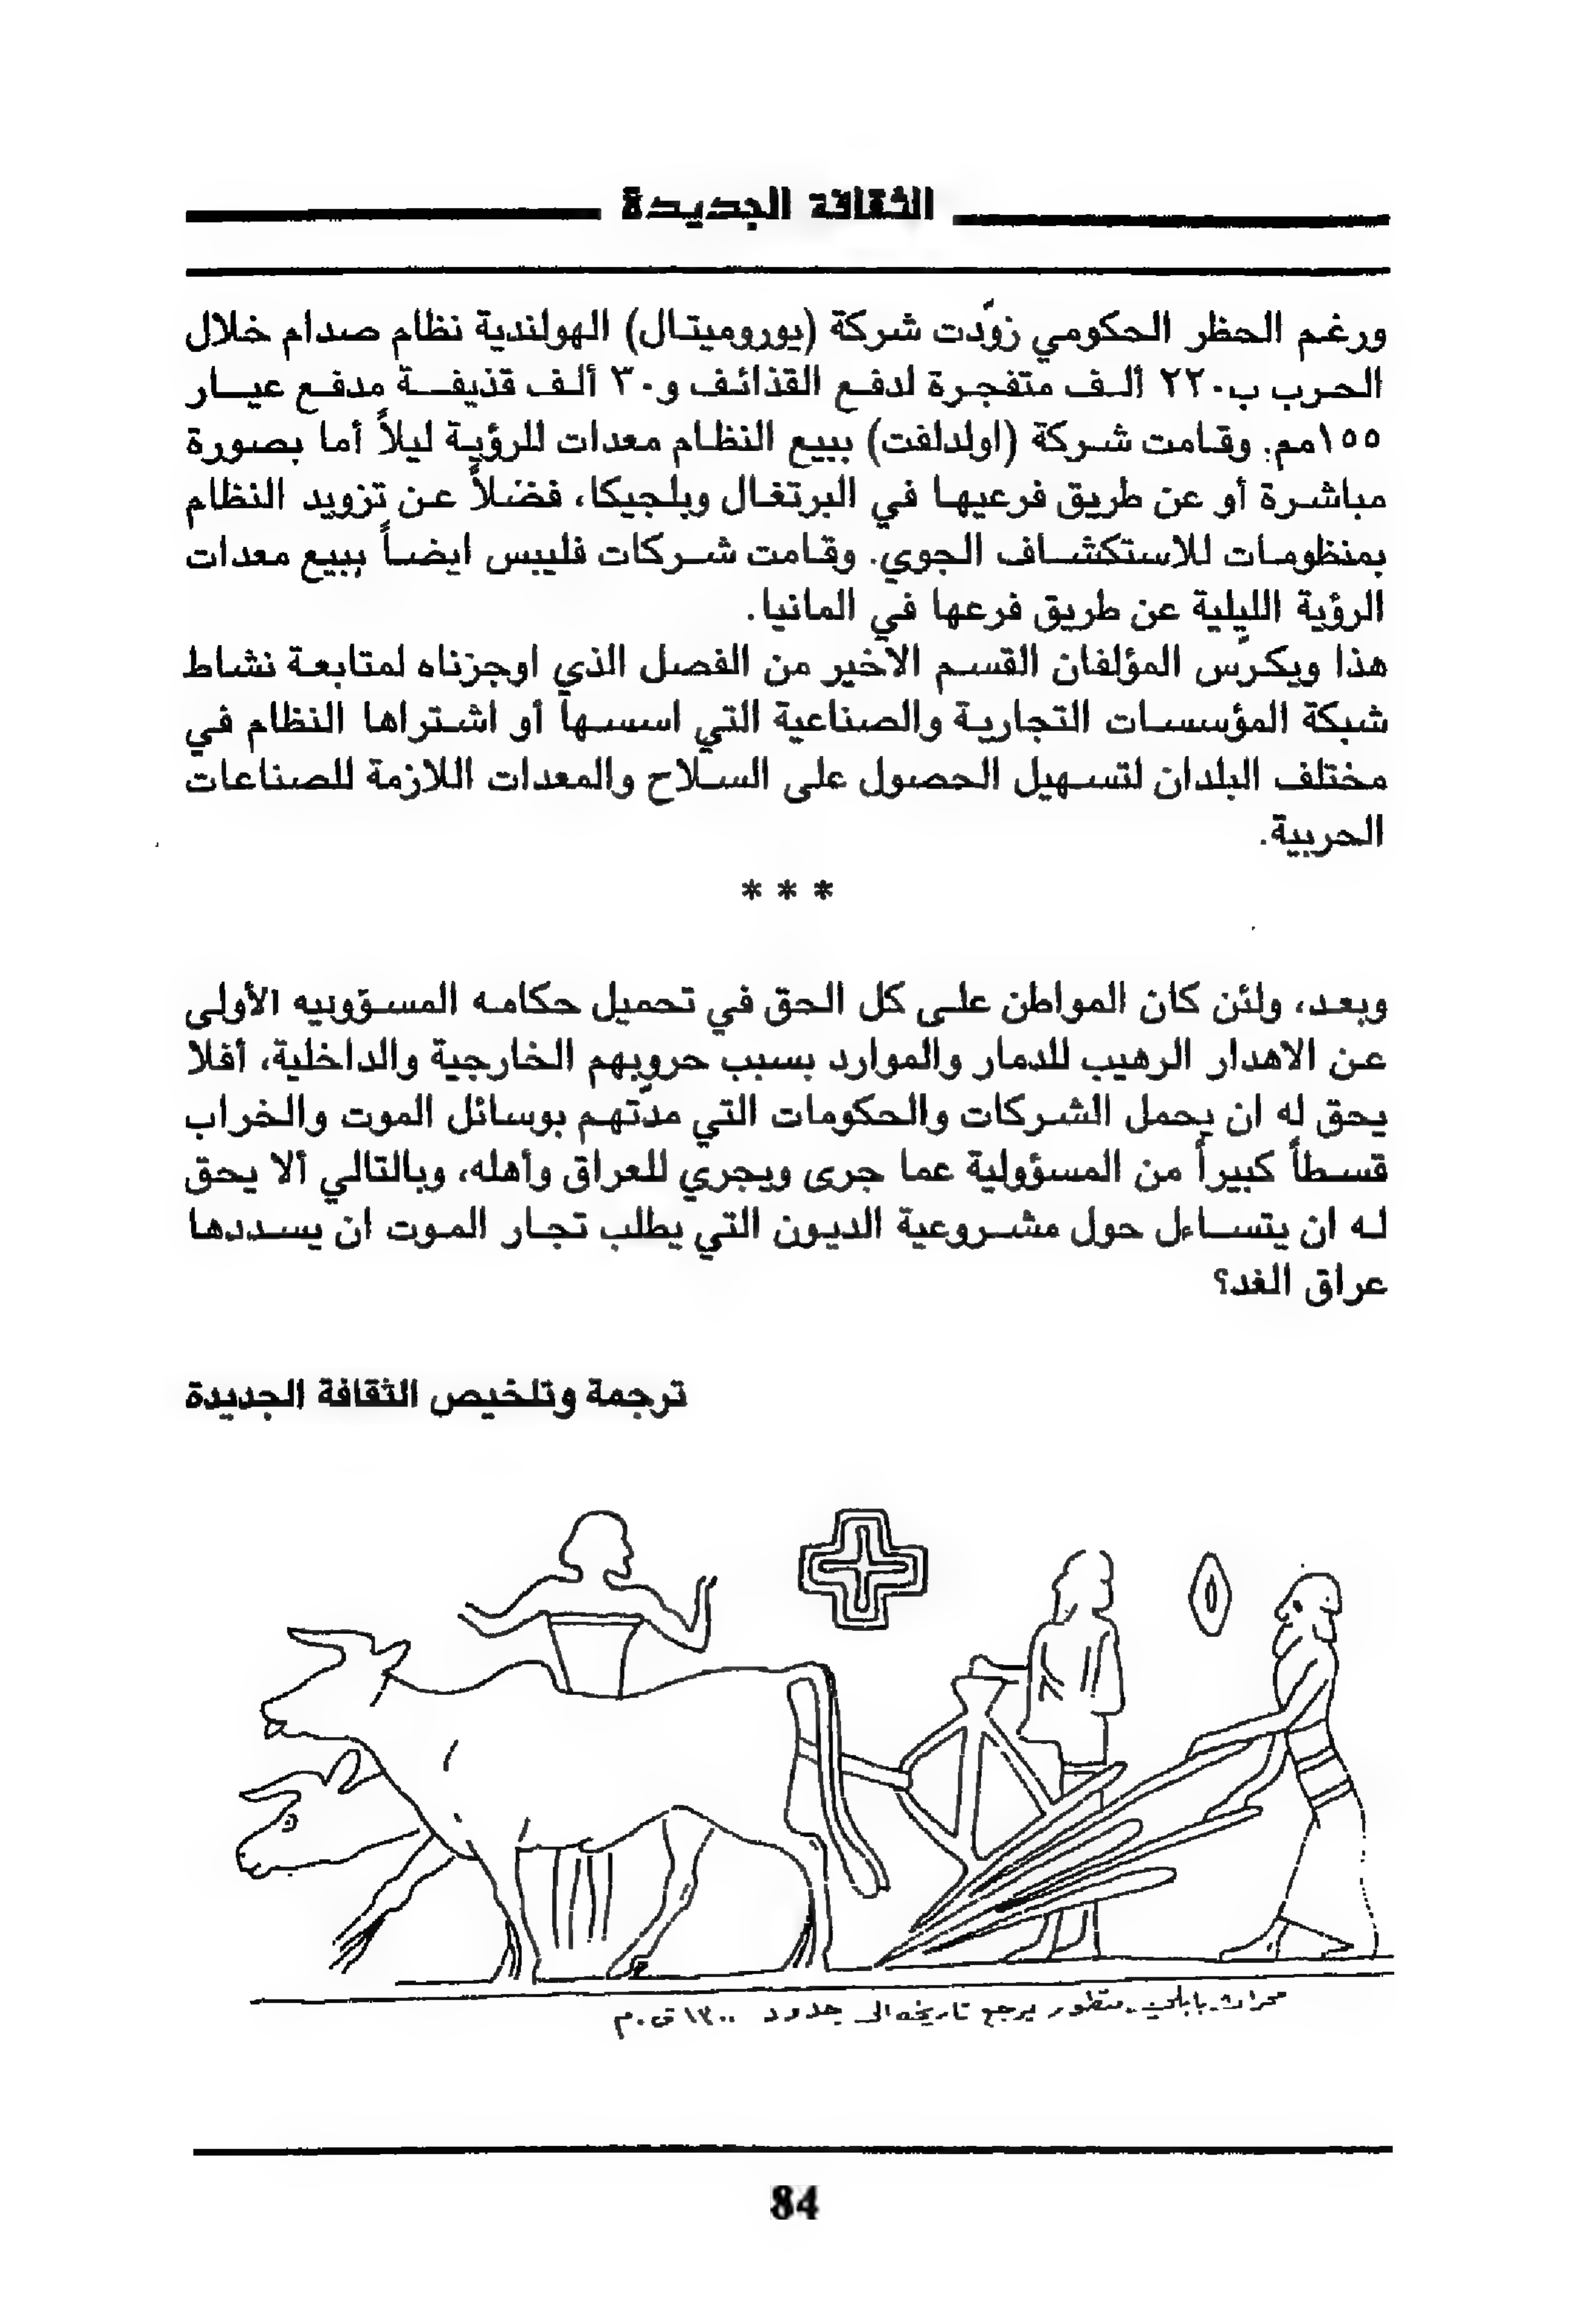 الثقافة الجديدة
ورغم الحظر الحكومي زوّدت شركة (يوروميتال) الهولندية نظام صدام خلال
الحرب ب٢٢٠ ألف متفجرة لدفع القذائف و٣٠ ألف قذيفة مدفع عيار
١٥٥مم. وقامت شركة (اولدلفت) ببيع النظام معدات للرؤية ليلاً أما بصورة
مباشرة أو عن طريق فرعيها في البرتغال وبلجيكا، فضلاً عن تزويد النظام
بمنظومات للاستكشاف الجوي. وقامت شركات فليبس ايضاً ببيع معدات
الرؤية الليلية عن طريق فرعها في المانيا.
هذا ويكرّس المؤلفان القسم الأخير من الفصل الذي اوجزناه لمتابعة نشاط
شبكة المؤسسات التجارية والصناعية التي اسسها أو اشتراها النظام في
مختلف البلدان لتسهيل الحصول على السلاح والمعدات اللازمة للصناعات
الحربية.
* * *
وبعد، ولئن كان المواطن على كل الحق في تحميل حكامه المسؤونيه الأولى
عن الاهدار الرهيب للدمار والموارد بسبب حروبهم الخارجية والداخلية، أفلا
يحق له ان يحمل الشركات والحكومات التي مدّتهم بوسائل الموت والخراب
قسطاً كبيراً من المسؤولية عما جرى ويجري للعراق وأهله، وبالتالي ألا يحق
له ان يتساءل حول مشروعية الديون التي يطلب تجار الموت ان يسددها
عراق الغد؟
ترجمة وتلخيص الثقافة الجديدة
محراث بابلي متطور يرجع تاريخه الى حدود ١٣٠٠ ق.م
84